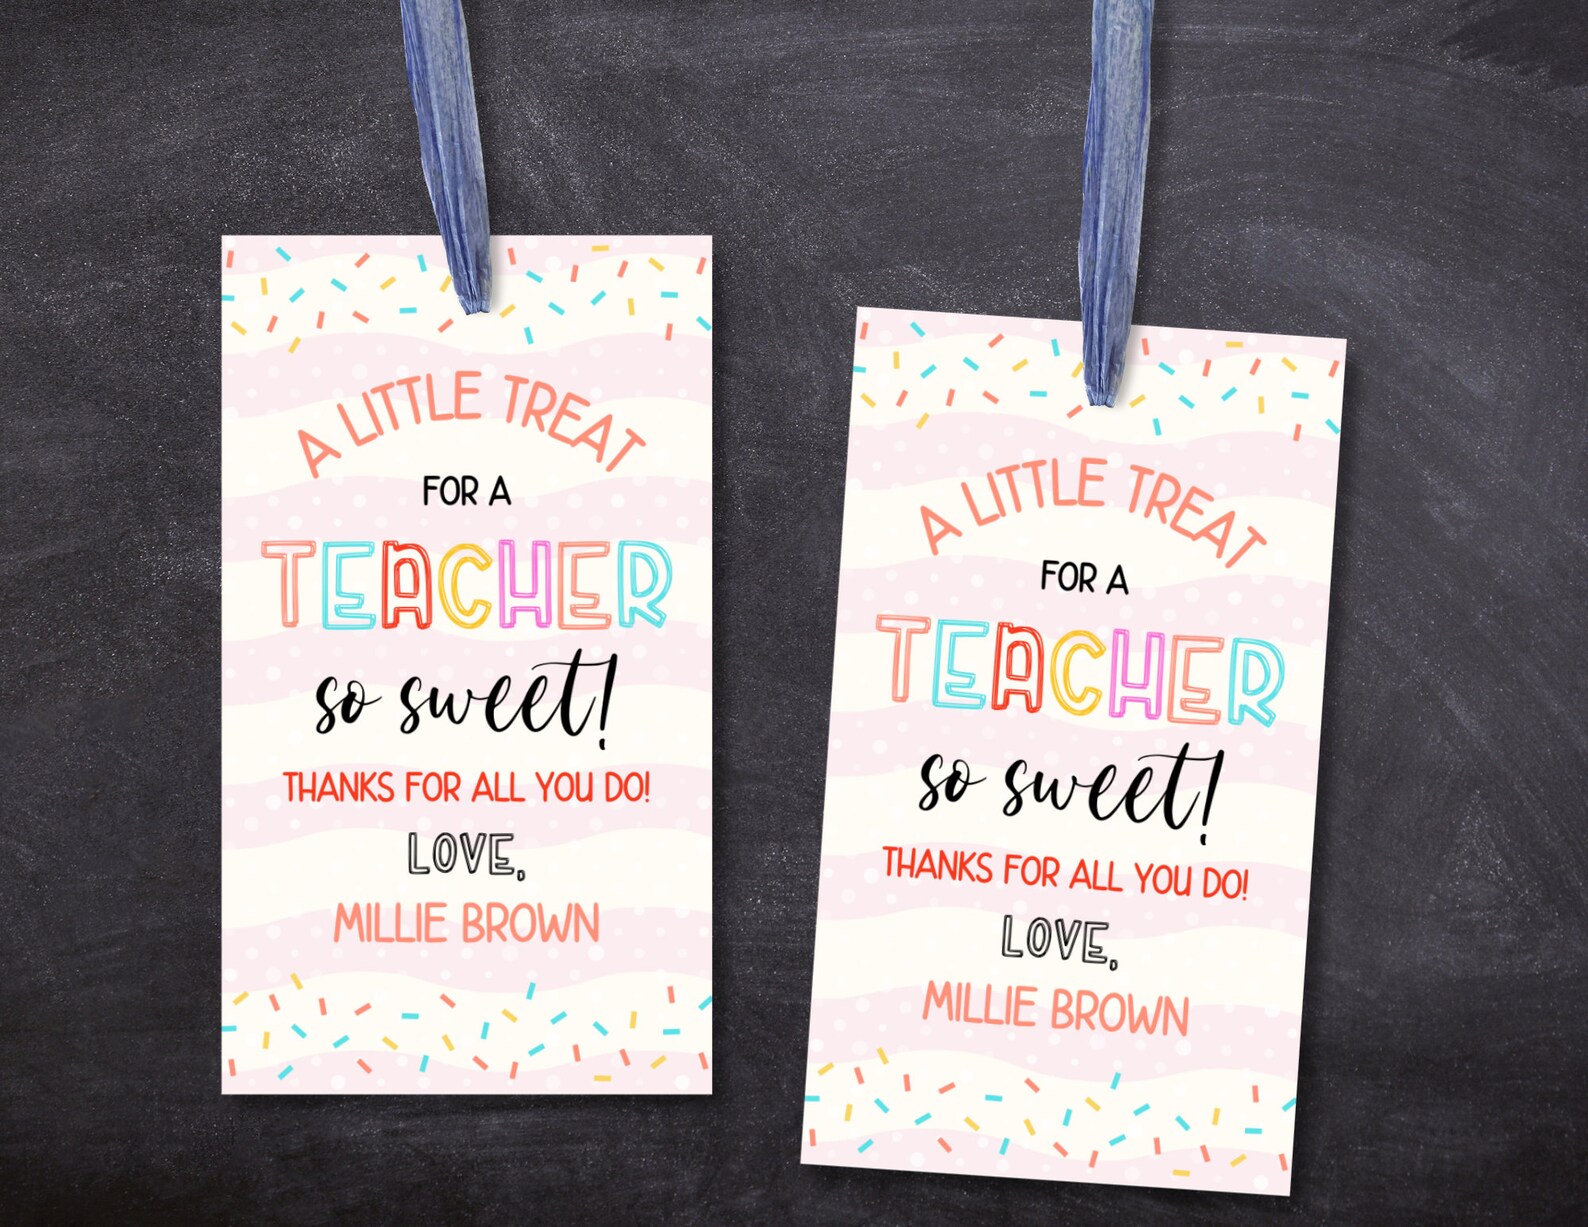 A LITTLE TREAT
FOR A
TEACHER
so sweet!
THANKS FOR ALL YOU DO!
LOVE,
MILLIE BROWN
A LITTLE TREAT
FOR A
TEACHER
so sweet!
THANKS FOR ALL YOU DO!
LOVE,
MILLIE BROWN